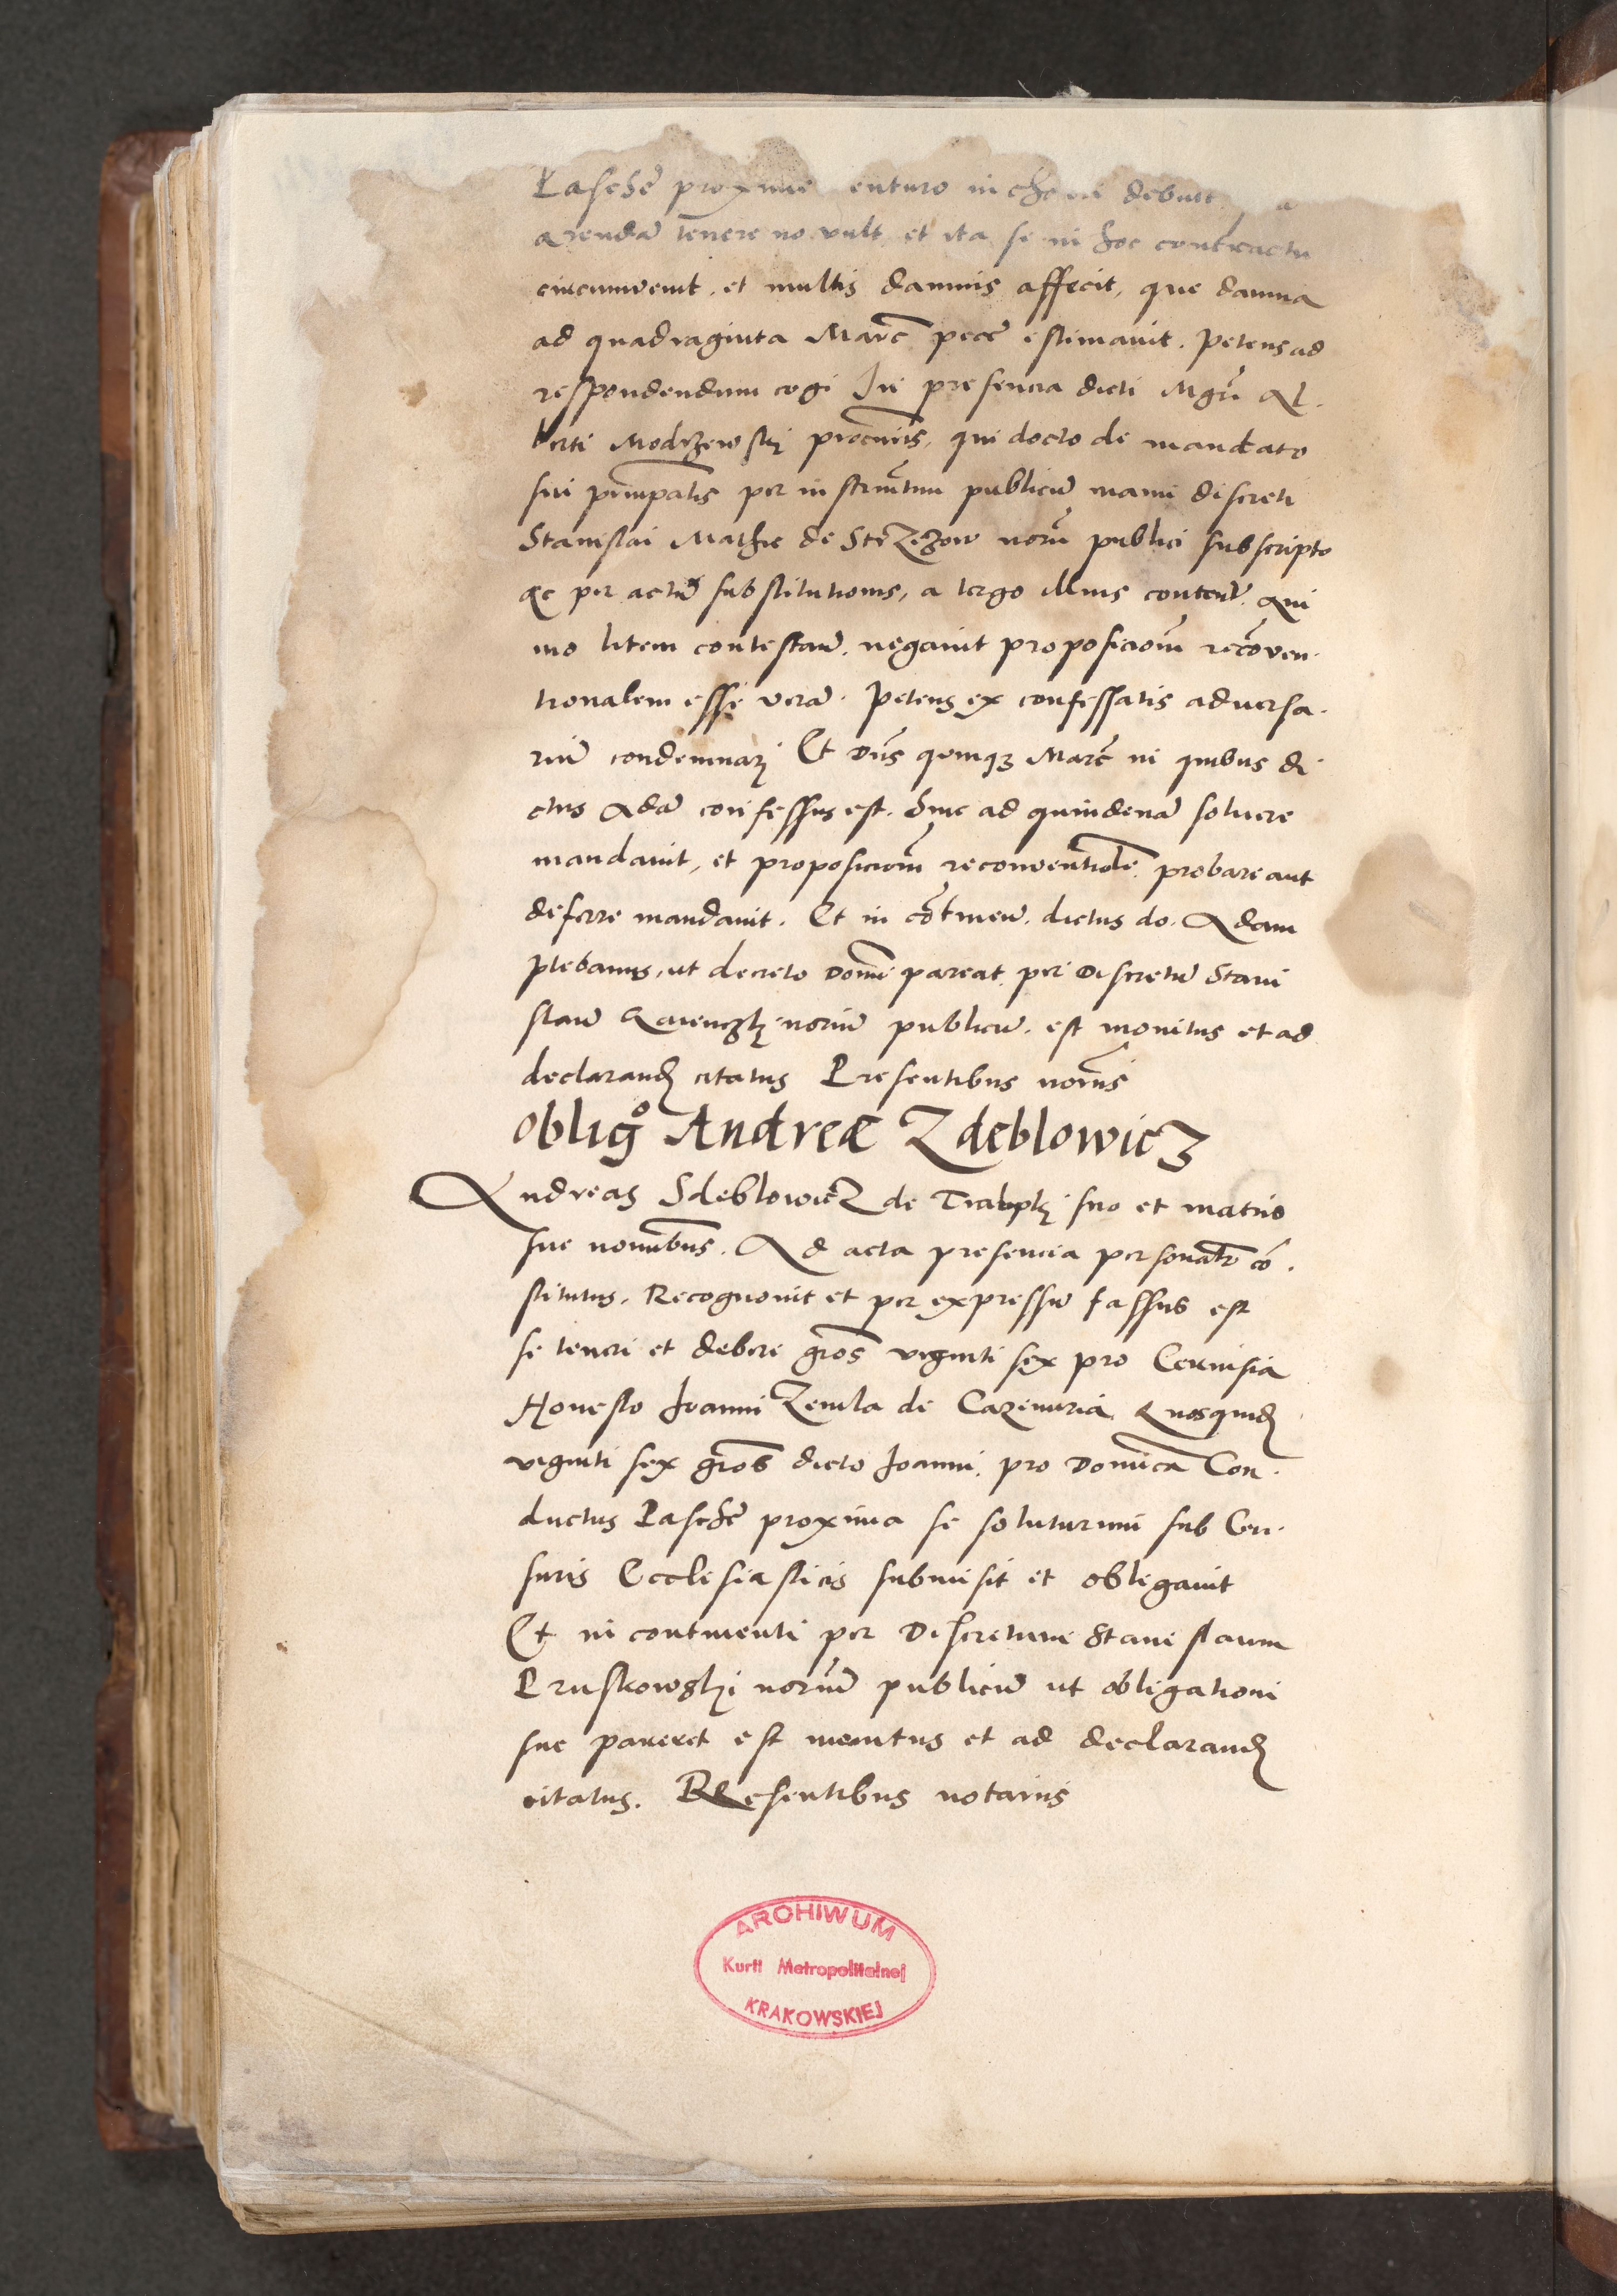 Pasche proxime enturo debuit
arendã tenere no vult, et ita se in hoc contractu
circumvenit, et multis damnis affecit, que damna
ad quadraginta Marc̃ pecc̃ estimavit. Petens ad
respondendum cogi In presencia dicti Mgr̃i Al-
berti Modrzewskj procur̃is, qui docto de mandato
sui principalis per instrum̃tum publicũ manu discreti
Stanislai Mathie de norij̃ publici subscripto
ac per actũ substitutionis, a tergo illius content̃. Qui
mo litem contestan̄. negavit proposiciom̃ recõven-
tionalem esse verã. Petens ex confessatis adversa-
riũ condemnarj Et Dñs qumq3 Marc̃ in quibus di-
ctus Adã confessus est. hinc ad quindenã solvere
mandavit, et proposiciom̃ reconventiõle. probare aut
deferre mandavit. Et in cõtinen̄. dictus do. Adam
plebanus, ut decreto Domĩ pareat per Discretũ Stani
slaũ noriũ publicũ. est monitus et ad
declarand citatus Presentibus norijs
Oblig̊ Andreæ Zdeblowicz
Andreas SdeblowicZ de suo et matris
sue nominibus. Ad acta presencia personalr̃ cõ-
stitutus. Recognovit et per expressũ fassus est
se teneri et debere gros̃ viginti sex pro Cervisia
Honesto Joanni Zemla de Cazimiria Quosquid
viginti sex gros̃ dicto Joanni. pro Domĩca Con-
ductus Paschẽ proxima se soluturum sub Cen-
suris Ecclesiasticis submisit et obligavit
Et in continenti per Discretum Stanislaum
Pruskowskj noriũ publicũ ut obligationi
sue pareret est monitus et ad declarand
citatus. PResentibus notarijs
ARCHIWUM
Kurii Metropolitalnej
KRAKOWSKIEJ